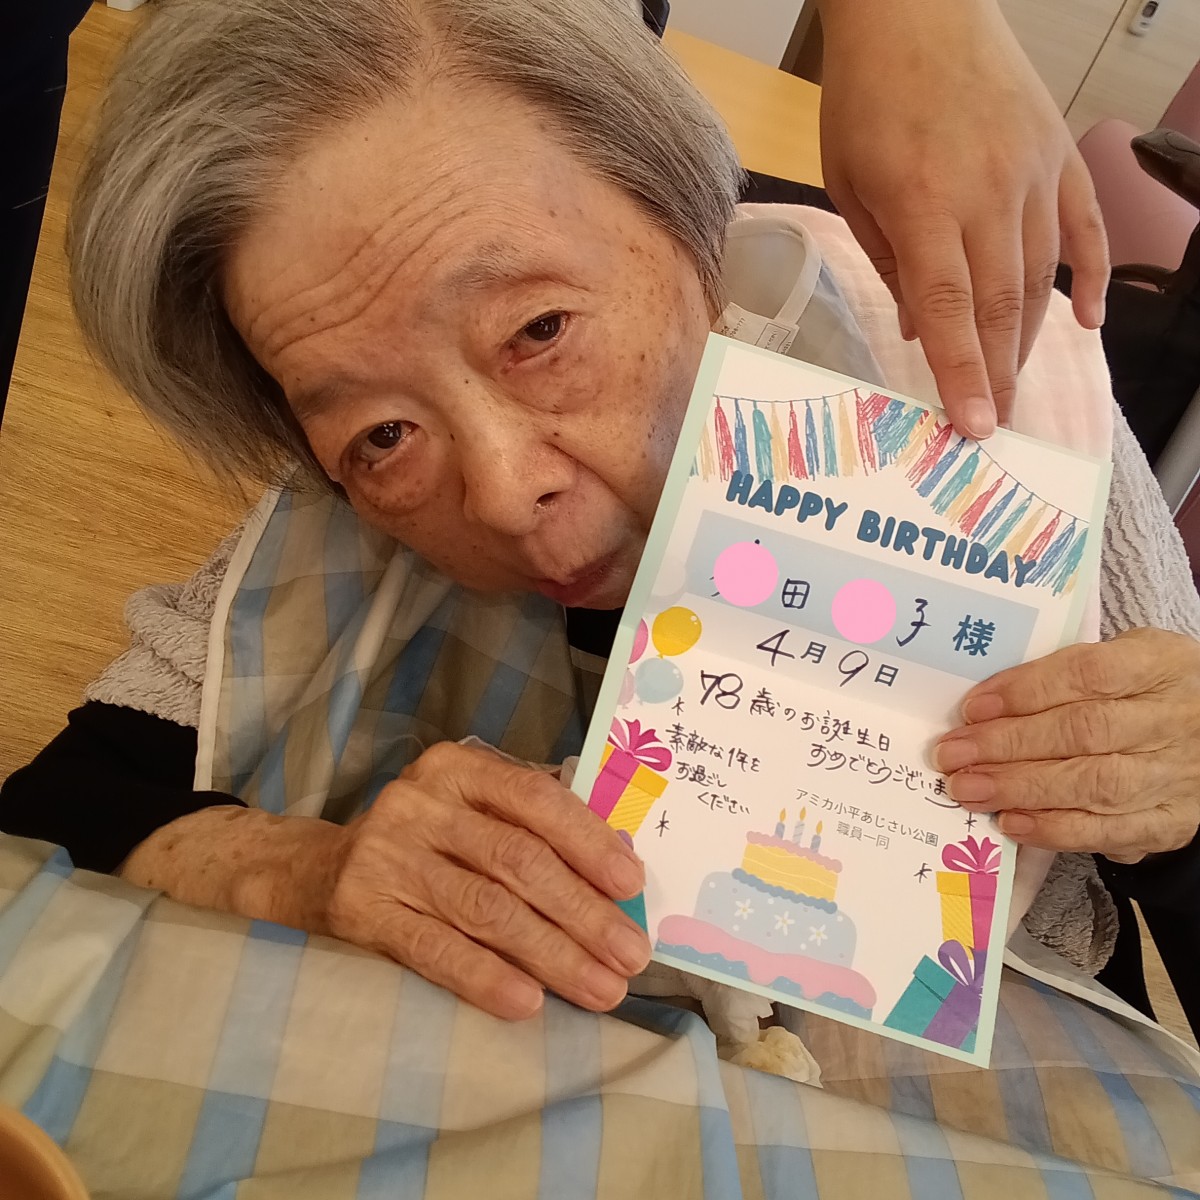 HAPPY BIRTHDAY
田 子 様
4月9日
78歳のお誕生日
おめでとうございます
素敵な1年を
お過ごし
ください
アミカ小平あじさい公園
職員一同